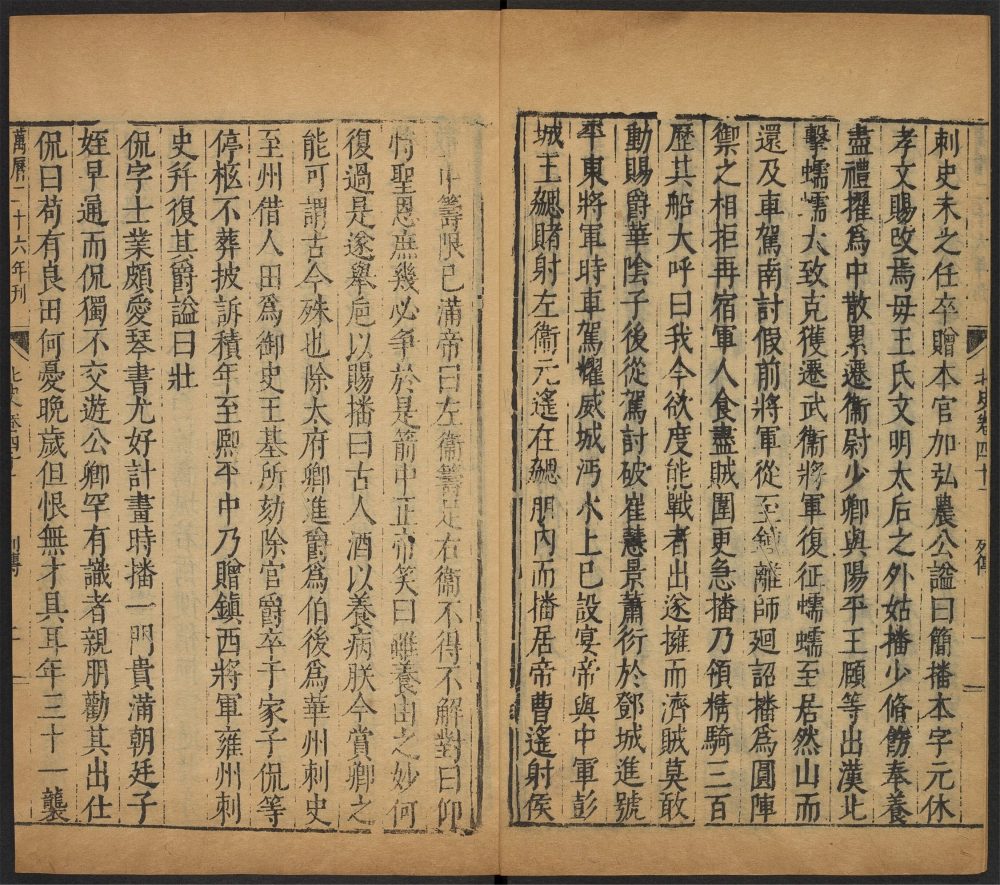 刺史未之任卒贈本官加弘農公謚曰簡播本字元休
孝文賜改焉母王氏文明太后之外姑播少脩飭奉養
盡禮擢爲中散累遷衞尉少卿與陽平王頤等出漠北
擊蠕蠕大致克獲遷武衞將軍復征蠕蠕至居然山而
還及車駕南討假前將軍從至鍾離師廻詔播爲圓陣
禦之相拒再宿軍人食盡賊圍更急播乃領精騎三百
歷其船大呼曰我今欲度能戰者出遂擁而濟賊莫敢
動賜爵華陰子後從駕討破崔慧景蕭衍於鄧城進號
平東將軍時車駕耀威城沔水上巳設宴帝與中軍彭
城王勰賭射左衞元遙在勰朋內而播居帝曹遙射侯
中籌限已滿帝曰左衞籌足右衞不得不解對曰仰
恃聖恩庶幾必爭於是箭中正帝笑曰雖養由之妙何
復過是遂舉巵以賜播曰古人酒以養病朕今賞卿之
能可謂古今殊也除太府卿進爵爲伯後爲華州刺史
至州借人田爲御史王基所劾除官爵卒于家子侃等
停柩不葬披訴積年至熙平中乃贈鎮西將軍雍州刺
史并復其爵謚曰壯
侃字士業頗愛琴書尤好計畫時播一門貴滿朝廷子
姪早通而侃獨不交遊公卿罕有識者親朋勸其出仕
侃曰苟有良田何憂晚歲但恨無才具耳年三十一襲
北史卷四十一
列傳
一
萬曆二十六年刊
北史卷四十
列傳
二